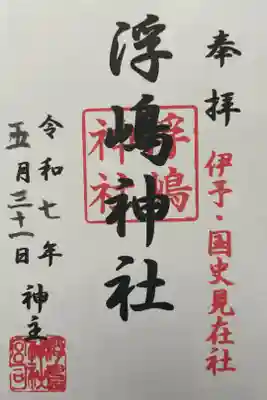 奉拝
伊予・国史見在社
浮嶋神社
浮嶋
神社
令和七年
五月三十一日
神主